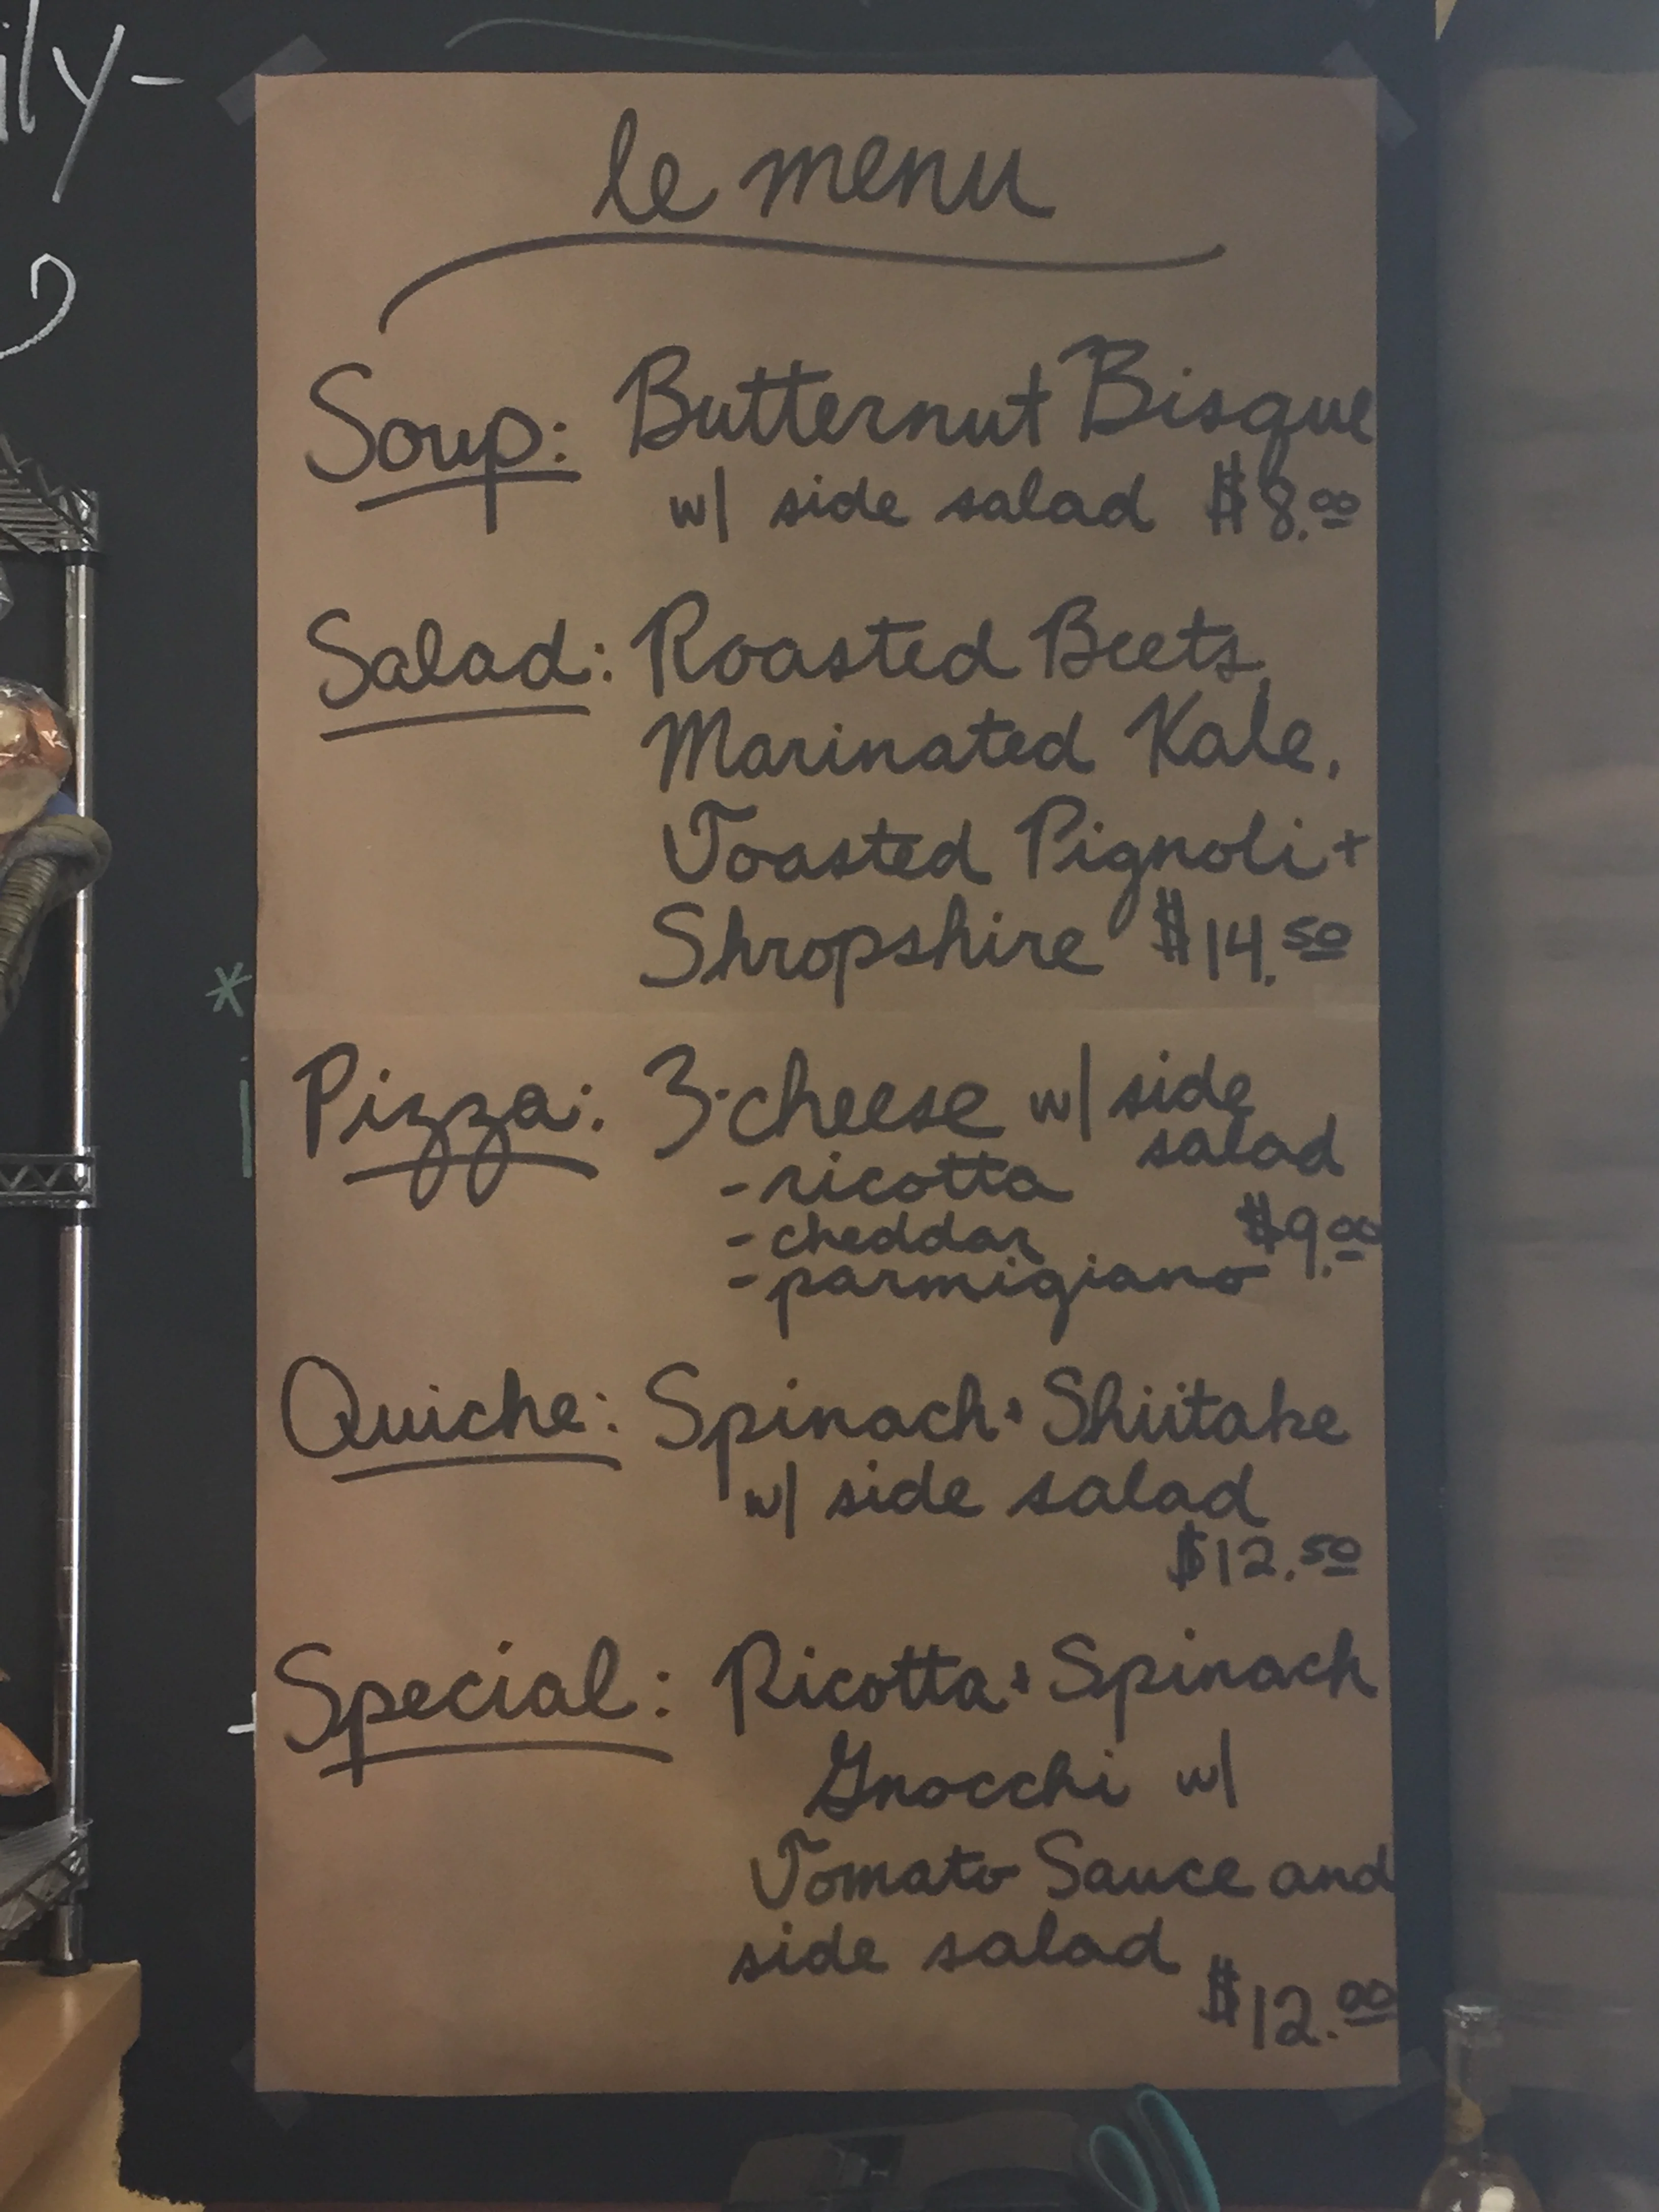 le menu
Soup: Butternut Bisque
w/ side salad $8.00
Salad: Roasted Beets,
Marinated Kale,
Toasted Pignoli +
Shropshire $14.50
Pizza: 3-cheese w/ side
salad
- ricotta
- cheddar $9.00
- parmigiano
Quiche: Spinach + Shiitake
w/ side salad
$12.50
Special: Ricotta + Spinach
Gnocchi w/
Tomato Sauce and
side salad
$12.00